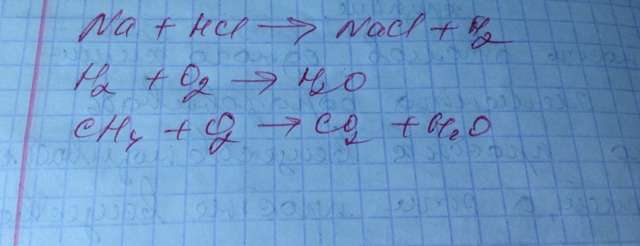 Na + HCl → NaCl + H₂
H₂ + O₂ → H₂O
CH₄ + O₂ → CO₂ + H₂O